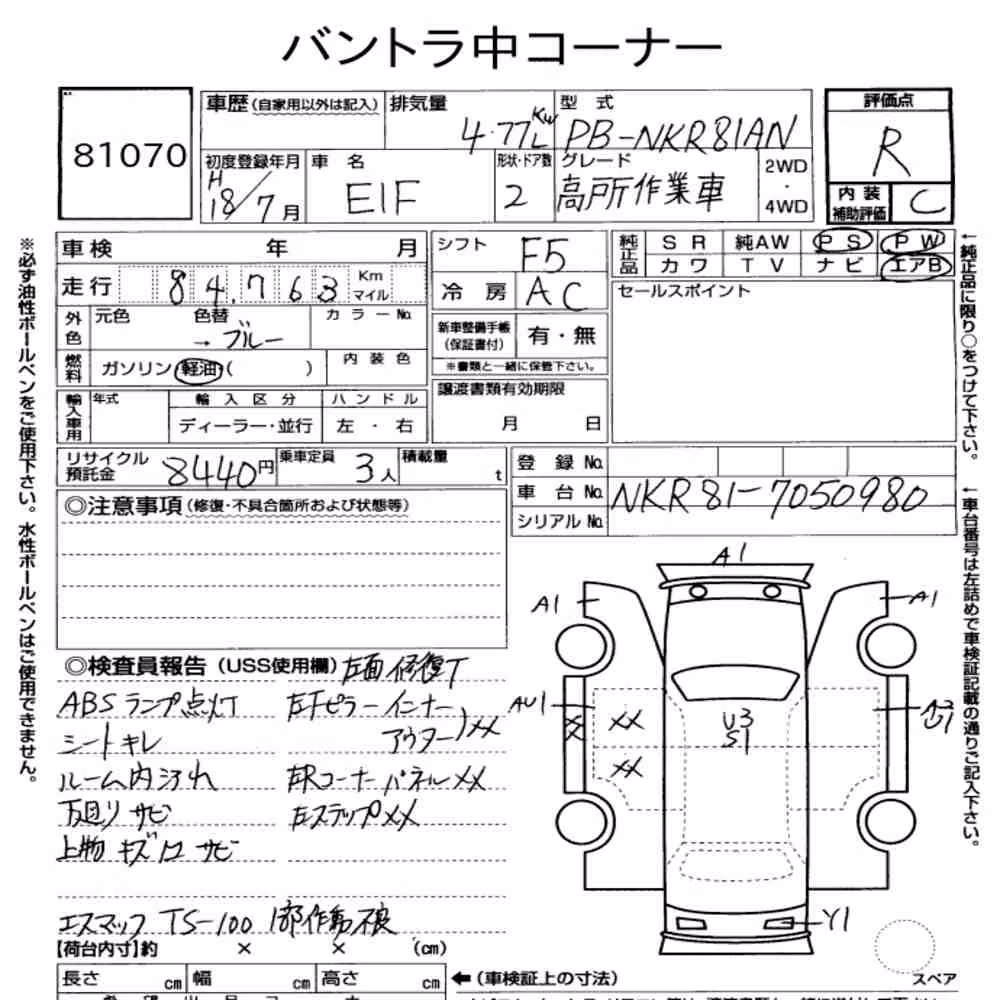 バントラ中コーナー
81070
車歴(自家用以外は記入) 排気量 4.77L Kw 型式 PB-NKR81AN
評価点 R
内装補助評価 C
初度登録年月 H18/7月 車名 ElF 形状・ドア数 2 グレード 高所作業車 2WD・4WD
車検 年 月
シフト F5
純正品 SR 純AW PS PW
カワ TV ナビ エアB
走行 84,763 Km マイル
冷房 AC
セールスポイント
外色 元色 色替 →ブルー カラーNo.
新車整備手帳(保証書付) 有・無
※書類と一緒に保管下さい。
燃料 ガソリン・軽油・( ) 内装色
譲渡書類有効期限 月 日
輸入車用 年式 輸入区分 ハンドル
ディーラー・並行 左・右
リサイクル預託金 8440円 乗車定員 3人 積載量 t
登録No.
車台No. NKR81-7050980
シリアルNo.
◎注意事項(修復・不具合箇所および状態等)
◎検査員報告(USS使用欄) 左面修復T
ABSランプ点灯 左Fピラーインナー
シートキレ アウター)XX
ルーム内汚れ 左Rコーナーパネル XX
下廻りサビ 左ステップXX
上物キズ凹サビ
エスマック TS-100 1部作動不良
【荷台内寸】約 × × (cm)
長さ cm 幅 cm 高さ cm
←(車検証上の寸法)
A1
A1
A1
AU1
XX
XX
XX
U3
S1
A2
U1
Y1
スペア
※必ず油性ボールペンをご使用下さい。水性ボールペンはご使用できません。
←純正品に限り○をつけて下さい。
←車台番号は左詰めで車検証記載の通りご記入下さい。